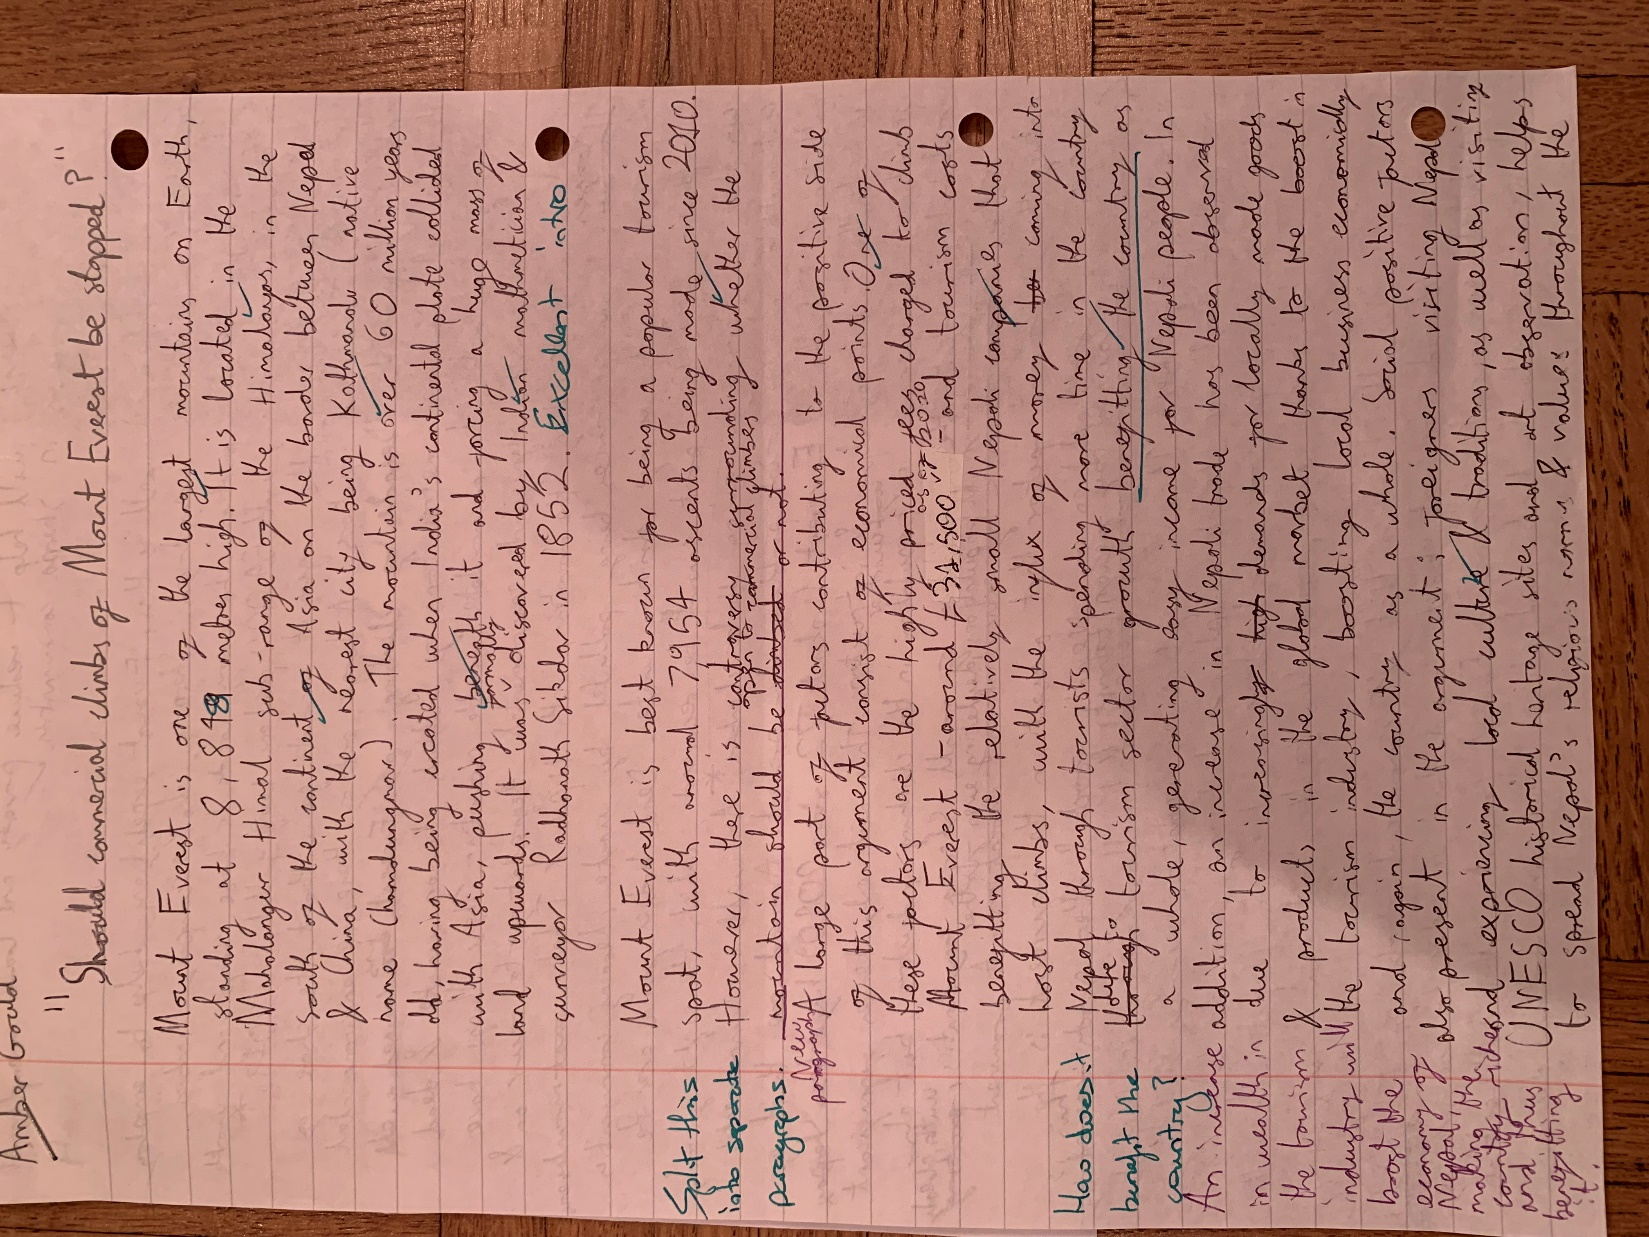 Amber Gould
"Should commercial climbs of Mount Everest be stopped?"
Mount Everest is one of the largest mountains on Earth,
standing at 8,848 meters high. It is located in the
Mahalanger Himal sub-range of the Himalayas, in the
south of the continent of Asia on the border between Nepal
& China, with the nearest city being Kathmandu (native
name Chomolungma). The mountain is over 60 million years
old, having being created when India's continental plate collided
with Asia, pushing beneath it and forcing a huge mass of
land upwards. It was formally discovered by Indian mathmetician &
surveyor Radhanath Sikdar in 1852. Excellent intro
Mount Everest is best known for being a popular tourism
spot, with around 7954 ascents being made since 2010.
However, there is controversy surrounding whether the
mountain should be climbed open to commercial climbers or not.
Split this
into separate
paragraphs.
New
paragraph
A large part of factors contributing to the positive side
of this argument consist of economical points. One of
these factors are the highly priced fees charged to climb
Mount Everest - around £31,500 as of 2020 - and tourism costs
benefitting the relatively small Nepali companies that
host climbs, with the influx of money coming into
Nepal through tourists spending more time in the country
through due to tourism sector growth benefiting the country as
a whole, generating easy income for Nepali people. In
addition, an increase in Nepali trade has been observed
due to increasing high demands for locally made goods
& products in the global market thanks to the boost in
the tourism industry, boosting local business economically
and, again, the country as a whole. Social positive factors
also present in the argument; foreigners visiting Nepal
and expericing local culture & traditions, as well as visiting
UNESCO historical heritage sites and art observation, helps
to spread Nepal's religious norms & values throughout the
How does it
benefit the
country?
An increase
in wealth in
the tourism
industry will
boost the
economy of
Nepal,
making the
country richer
and thus
benefitting
it.